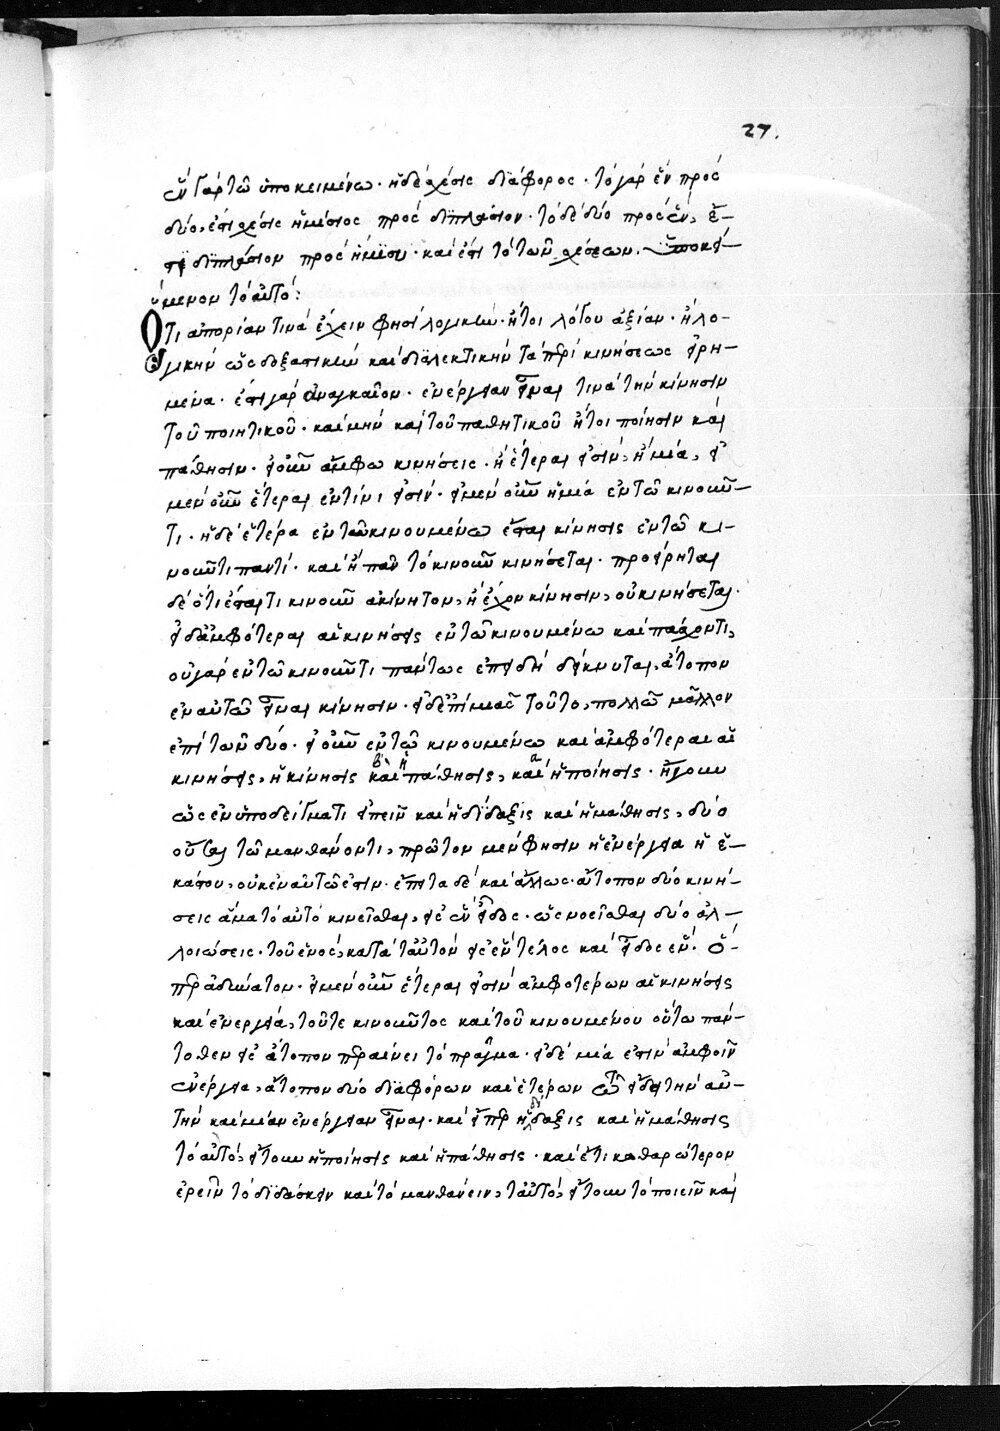 27.
ἓν γὰρ τῶ ὑποκειμένω· ἡ δὲ σχέσις διάφορος· τὸ γὰρ ἓν πρὸς
δύο, ἐστὶ σχέσις ἡμίσεος πρὸς διπλάσιον· τὸ δὲ δύο πρὸς ἓν, ἔ-
στι διπλάσιον πρὸς ἥμισυ· καὶ ἐστὶ τὸ τῶν σχέσεων ὑποκεί-
μενον τὸ αὐτό:
Ὅτι ἀπορίαν τινὰ ἔχειν φησὶ λογικὴν· ἤτοι λόγου ἀξίαν· ἢ λο-
γικὴν ὡς δοξαστικὴν καὶ διαλεκτικὴν τὰ περὶ κινήσεως εἰρη-
μένα· ἔστι γὰρ ἀναγκαῖον· ἐνέργειαν εἶναι τινὰ τὴν κίνησιν
τοῦ ποιητικοῦ· καὶ μὴν καὶ τοῦ παθητικοῦ ἤτοι ποίησιν καὶ
πάθησιν· εἰ οὖν ἄμφω κινήσεις· ἢ ἕτεραι εἰσὶν, ἢ μία, εἰ
μὲν οὖν ἕτεραι ἐν τίνι εἰσίν· εἰ μὲν οὖν ἡ μία ἐν τῶ κινοῦν-
τι· ἡ δὲ ἑτέρα ἐν τῶ κινουμένω ἔσται κίνησις ἐν τῶ κι-
νοῦντι παντί· καὶ ἢ πᾶν τὸ κινοῦν κινήσεται· προείρηται
δὲ ὅτι ἔσται τι κινοῦν ἀκίνητον, ἢ ἔχον κίνησιν, οὐ κινήσεται·
εἰ δ' ἀμφότεραι αἱ κινήσεις ἐν τῶ κινουμένω καὶ πάσχοντι,
οὐ γὰρ ἐν τῶ κινοῦντι πάντως ἐπειδὴ δείκνυται, ἄτοπον
ἐν αὐτῶ εἶναι κίνησιν· εἰ δ' ἐπὶ μιᾶς τοῦτο, πολλῶ μᾶλλον
ἐπὶ τῶν δύο· εἰ οὖν ἐν τῶ κινουμένω καὶ ἀμφότεραι αἱ
κινήσεις, ἡ κίνησις καὶ ἡ πάθησις, καὶ ἡ ποίησις· ἤγουν
ὡς ἐν ὑποδείγματι εἰπεῖν καὶ ἡ δίδαξις καὶ ἡ μάθησις, δύο
οὖσαι τῶ μανθάνοντι, πρῶτον μὲν φησὶν ἡ ἐνέργεια ἡ ἑ-
κάστου, οὐκ ἐν αὐτῶ ἐστιν· ἔπειτα δὲ καὶ ἄλλως· ἄτοπον δύο κινή-
σεις ἅμα τὸ αὐτὸ κινεῖσθαι, εἰς ἓν εἶδος· ὡς νοεῖσθαι δύο ἀλ-
λοιώσεις· τοῦ ἑνὸς, κατὰ ταὐτὸν εἰς ἓν τέλος καὶ εἶδος ἓν· ὅ-
περ ἀδύνατον· εἰ μὲν οὖν ἕτεραι εἰσὶν ἀμφοτέρων αἱ κινήσεις
καὶ ἐνέργειαι, τοῦ τε κινοῦντος καὶ τοῦ κινουμένου οὕτω παν-
τόθεν εἰς ἄτοπον περαίνει τὸ πρᾶγμα· εἰ δὲ μία ἐστὶν ἀμφοῖν
ἐνέργεια, ἄτοπον δύο διαφόρων καὶ ἑτέρων τῶ εἴδει τὴν αὐ-
τὴν καὶ μίαν ἐνέργειαν εἶναι· καὶ εἴπερ ἡ δίδαξις καὶ ἡ μάθησις
τὸ αὐτὸ, εἴτουν ἡ ποίησις καὶ ἡ πάθησις· καὶ ἔτι καθαρώτερον
ἐρεῖν τὸ διδάσκειν καὶ τὸ μανθάνειν, ταὐτὸ, εἴτουν τὸ ποιεῖν καὶ